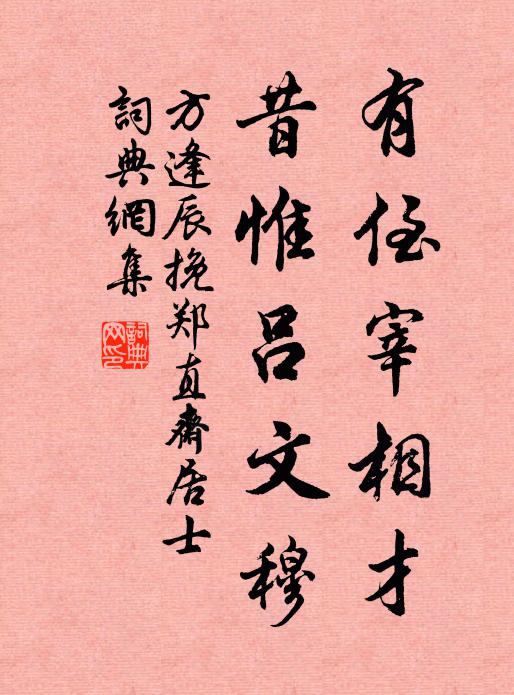 有侄宰相才
昔惟吕文穆
方逢辰挽郑直斋居士
詞典網集
詞典網印